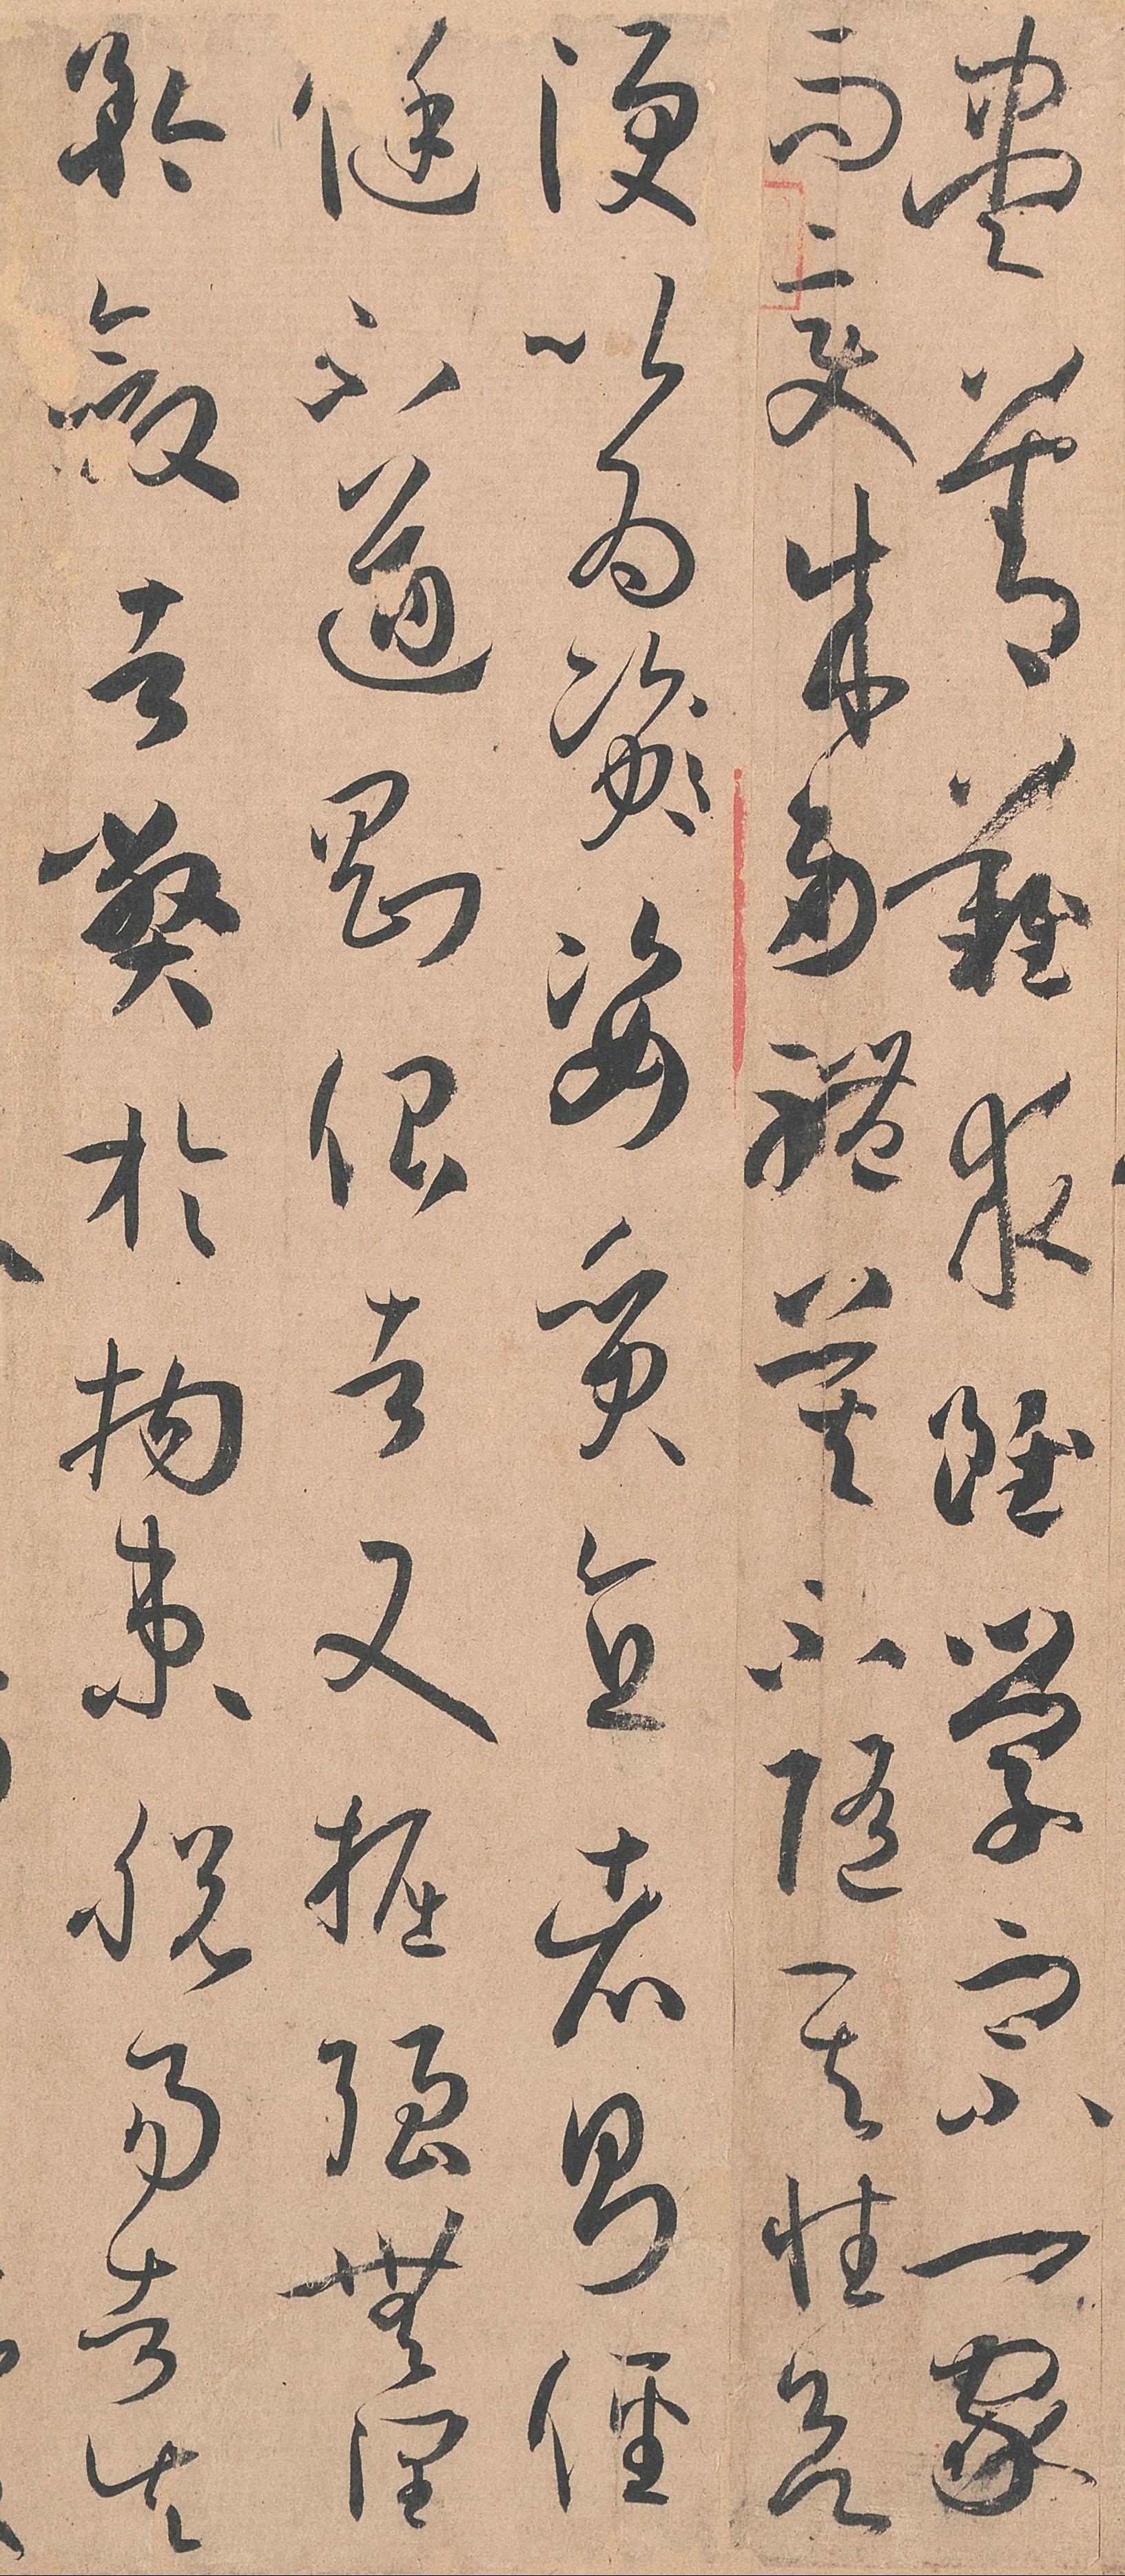 盡善難求雖學宗一家
而變成多體莫不隨其性欲
便以為資姿質直者則俓
侹不遒剛佷者又掘強無潤
矜斂者弊於拘束脫易者失